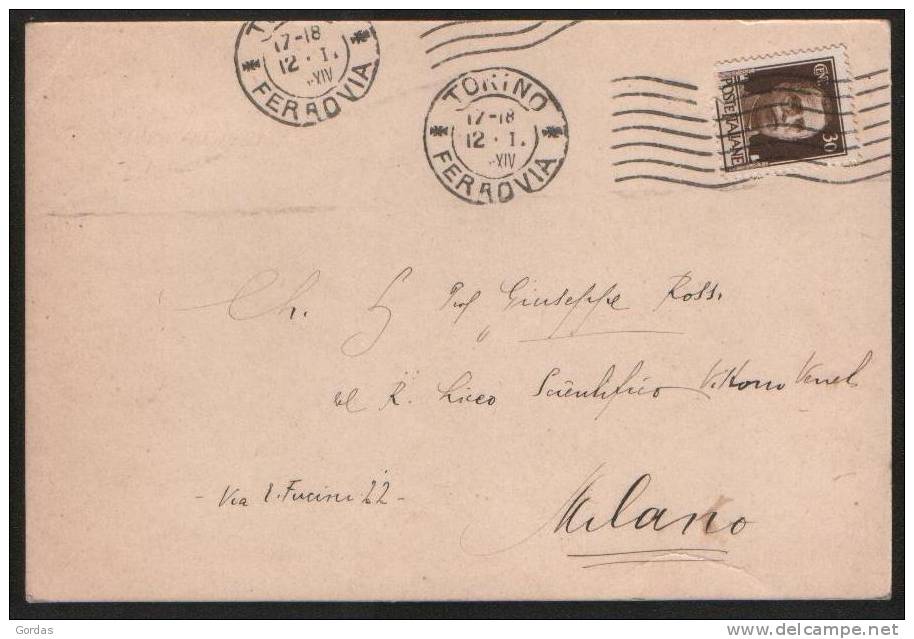 TO
17-18
12 · I.
XIV
FERROVIA
TORINO
17-18
12 · I.
XIV
FERROVIA
POSTE ITALIANE
30
CENT
Ch. Prof Giuseppe Rossi
al R. Liceo Scientifico Vittorio Veneto
- Via R. Fucini 22 -
Milano
Gordas
www.delcampe.net